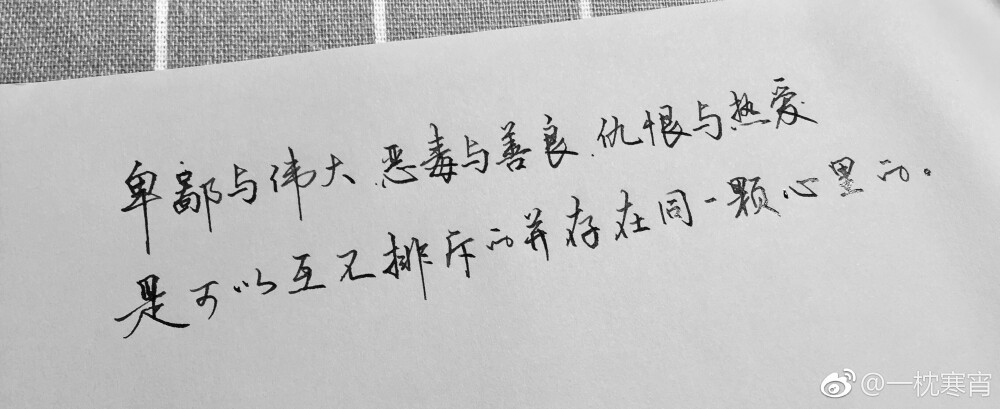 卑鄙与伟大、恶毒与善良、仇恨与热爱
是可以互不排斥的并存在同一颗心里的。
@一枕寒宵